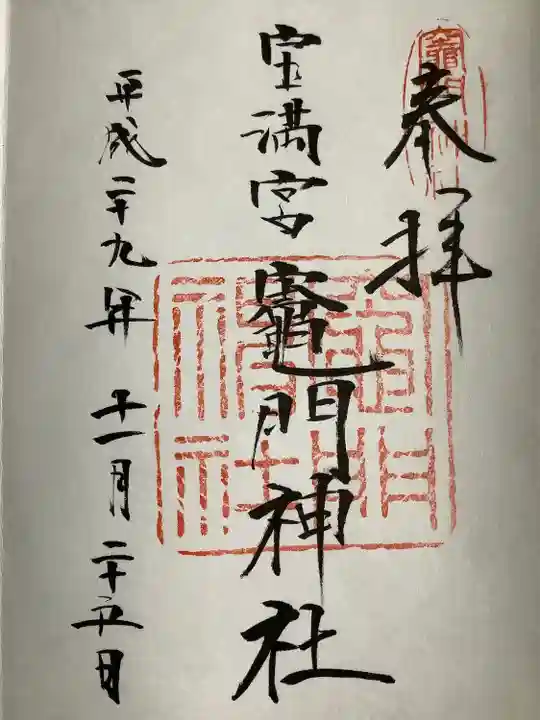 奉拝
宝満宮竈門神社
平成二十九年十一月二十五日
竈門神社